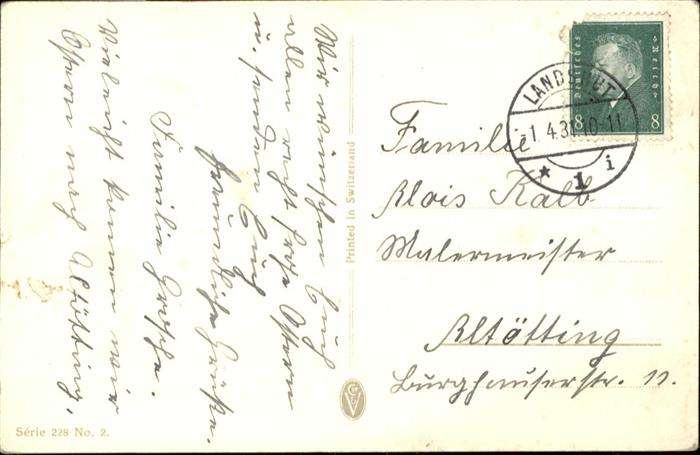 Wir wünschen Euch
allen recht frohe Ostern
u. senden Euch
freundliche Grüße.
Familie
Vieleicht kommen wir
Ostern nach Altötting.
Printed in Switzerland
Série 228 No. 2.
Deutsches Reich
8 8
LANDSHUT
-1.4.31.10-11
* 1 i
Familie
Alois Kalb
Malermeister
Altötting
Burghauserstr. 11.